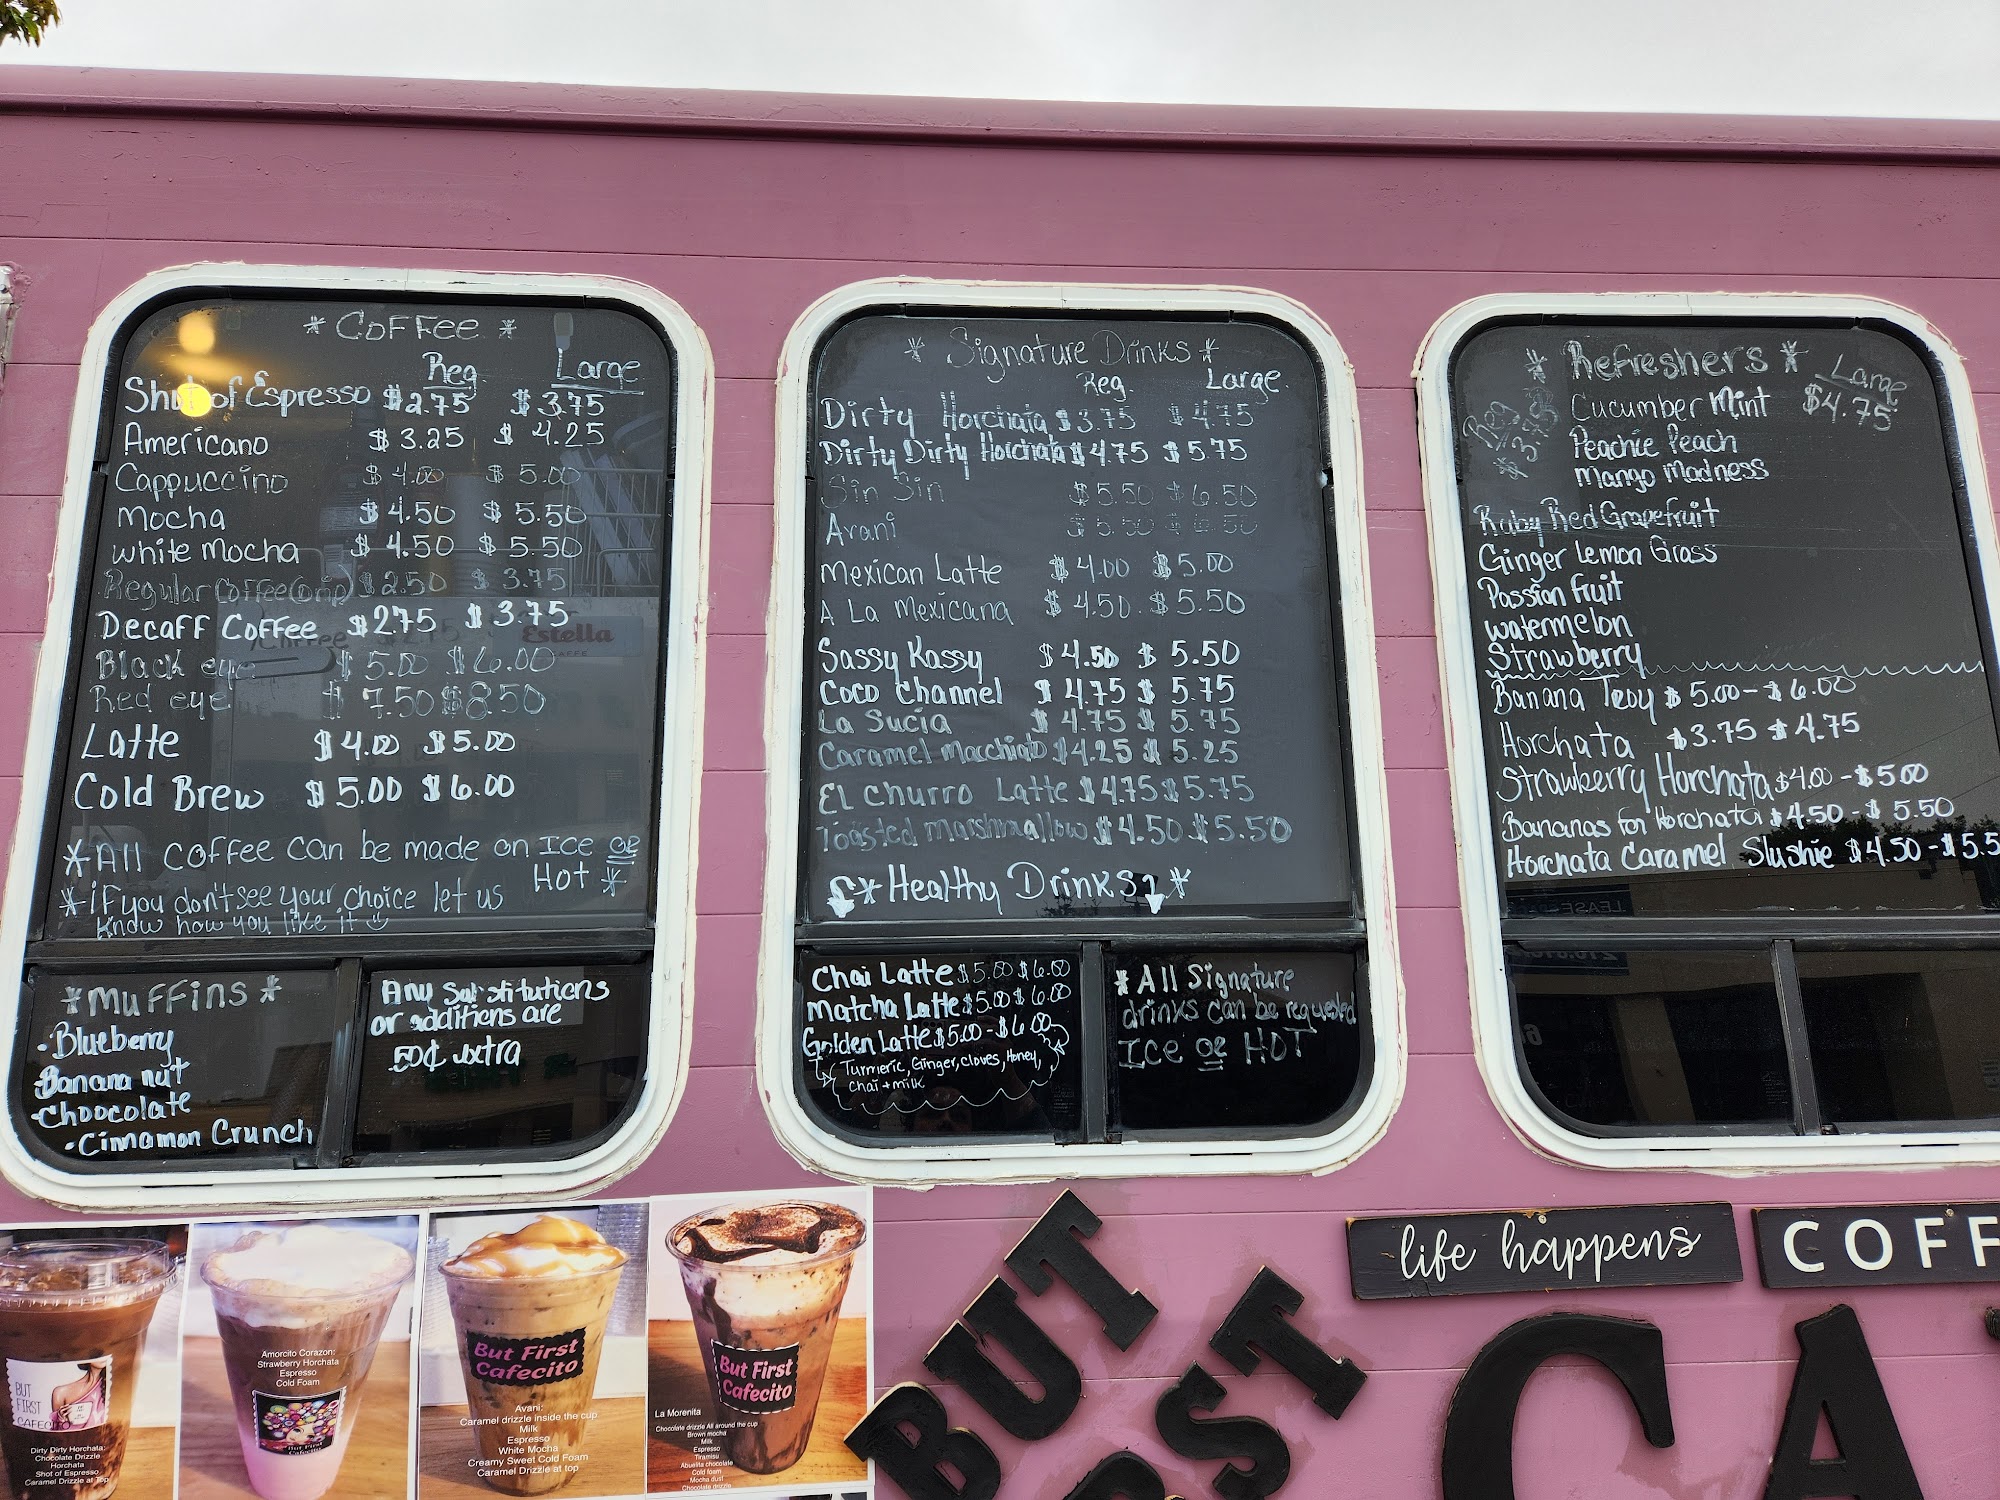 * Coffee *
Reg. Large
Shot of Espresso $2.75 $3.75
Americano $3.25 $4.25
Cappuccino $4.00 $5.00
Mocha $4.50 $5.50
White Mocha $4.50 $5.50
Regular Coffee (Drip) $2.50 $3.75
Decaff Coffee $2.75 $3.75
Black eye $5.00 $6.00
Red eye $7.50 $8.50
Latte $4.00 $5.00
Cold Brew $5.00 $6.00
*All coffee can be made on Ice or
Hot *
*if you don't see your choice let us
know how you like it
Estella
CAFFE
*Muffins*
•Blueberry
•Banana nut
•Choocolate
•Cinnamon Crunch
Any Substitutions
or additions are
.50¢ extra
* Signature Drinks *
Reg. Large
Dirty Horchata $3.75 $4.75
Dirty Dirty Horchata $4.75 $5.75
Sin Sin $5.50 $6.50
Avani $5.50 $6.50
Mexican Latte $4.00 $5.00
A La Mexicana $4.50 $5.50
Sassy Kassy $4.50 $5.50
Coco Channel $4.75 $5.75
La Sucia $4.75 $5.75
Caramel Macchiato $4.25 $5.25
El Churro Latte $4.75 $5.75
Toasted Marshmallow $4.50 $5.50
*Healthy Drinks*
Chai Latte $5.00 $6.00
Matcha Latte $5.00 $6.00
Golden Latte $5.00-$6.00
Turmeric, Ginger, cloves, Honey,
chai + milk
*All Signature
drinks can be requested
Ice or HOT
* Refreshers *
Reg $3.75
Large $4.75
Cucumber Mint
Peachie Peach
Mango Madness
Ruby Red Grapefruit
Ginger Lemon Grass
Passion fruit
Watermelon
Strawberry
Banana Troy $5.00-$6.00
Horchata $3.75 $4.75
Strawberry Horchata $4.00-$5.00
Bananas for Horchata $4.50-$5.50
Horchata Caramel Slushie $4.50-$5.5
BUT
FIRST
CAFECITO
Dirty Dirty Horchata:
Chocolate Drizzle
Horchata
Shot of Espresso
Caramel Drizzle at Top
Amorcito Corazon:
Strawberry Horchata
Espresso
Cold Foam
But First
Cafecito
But First
Cafecito
Avani:
Caramel drizzle inside the cup
Milk
Espresso
White Mocha
Creamy Sweet Cold Foam
Caramel Drizzle at top
But First
Cafecito
La Morenita
Chocolate drizzle All around the cup
Brown mocha
Milk
Espresso
Tiramisu
Abuelita chocolate
Cold foam
Mocha dust
Chocolate drizzle
life happens
COFF
BUT
ST
CA